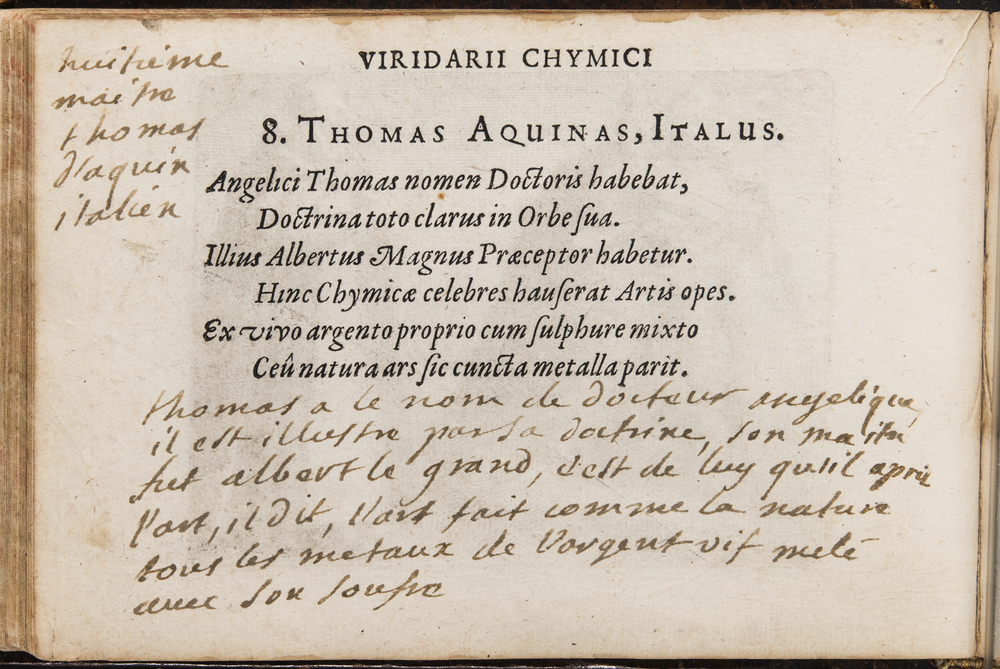 VIRIDARII CHYMICI
huitieme
maitre
thomas
d'aquin
italien
8. THOMAS AQUINAS, ITALUS.
Angelici Thomas nomen Doctoris habebat,
Doctrina toto clarus in Orbe ſua.
Illius Albertus Magnus Præceptor habetur.
Hinc Chymicæ celebres hauſerat Artis opes.
Ex vivo argento proprio cum ſulphure mixto
Ceû natura ars ſic cuncta metalla parit.
thomas a le nom de docteur angelique,
il est illustre par sa doctrine, son maitre
fut albert le grand, c'est de luy qu'il apris
l'art, il dit, l'art fait comme la nature
tous les metaux de l'argent vif melé
avec son soufre